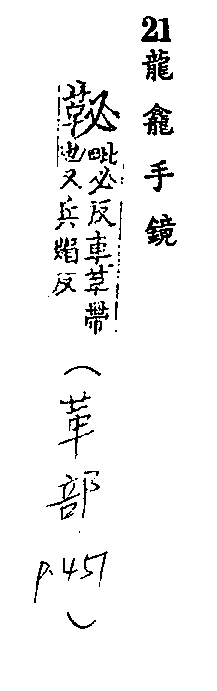 21 龍龕手鏡
䩛
毗必反車革帶
也又兵媚反
(革部
p.451)